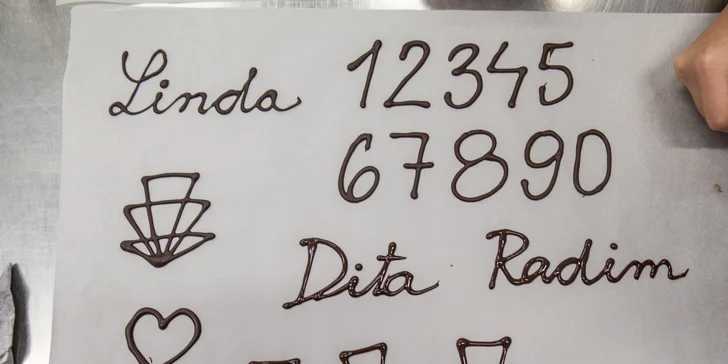 Linda 12345
67890
Dita Radim